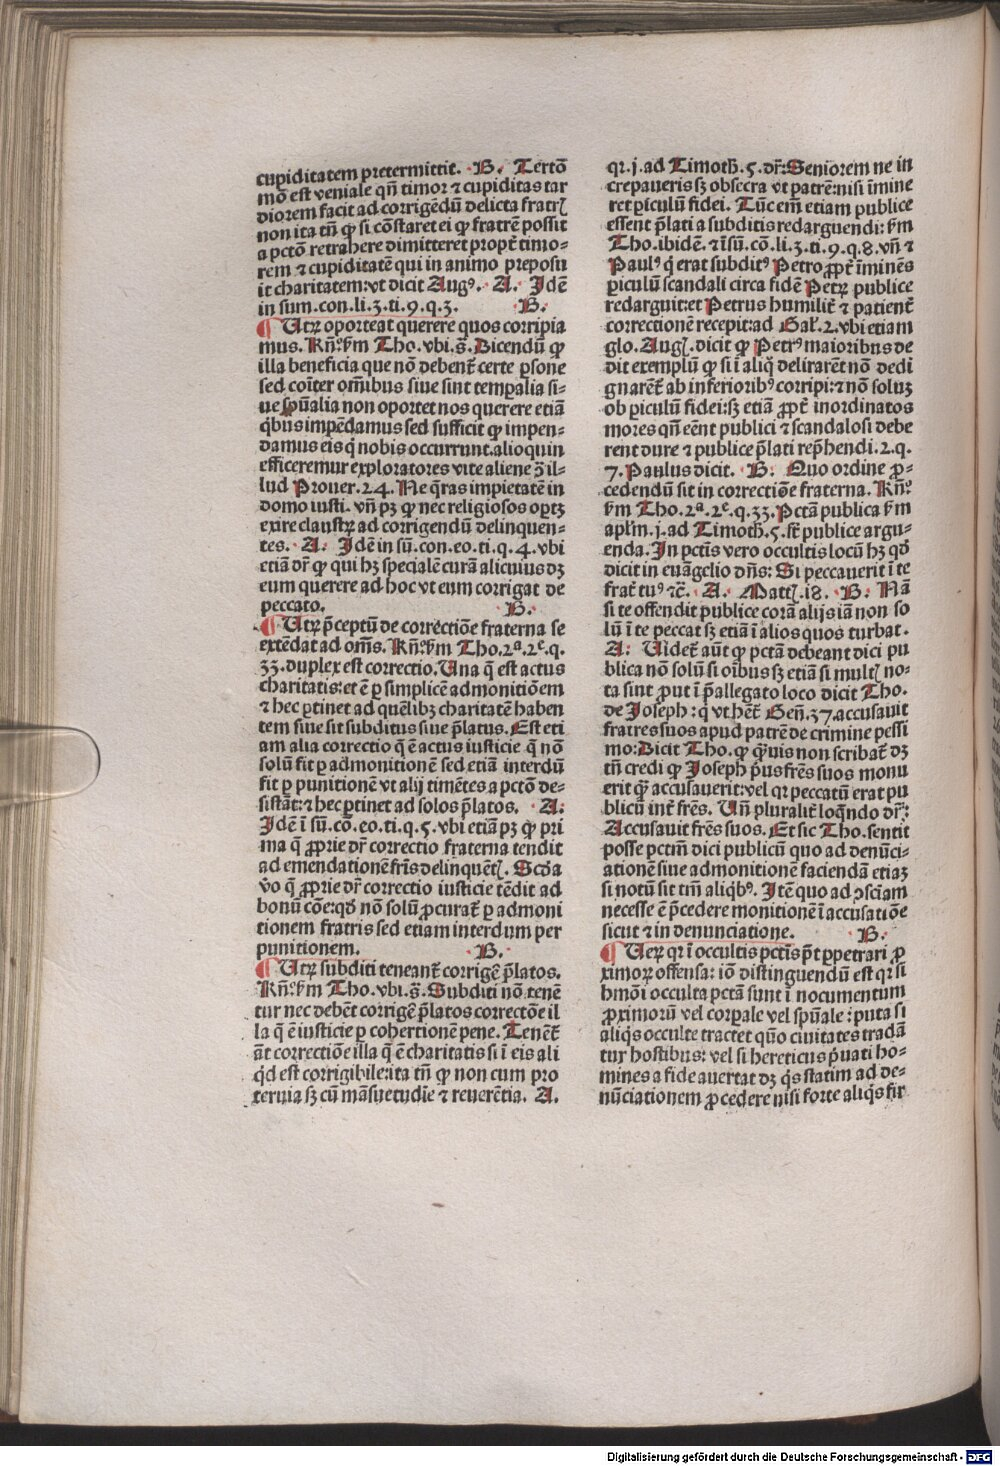 cupiditatem pretermittit. ·B. Tertō
mō est veniale qn̄ timor ⁊ cupiditas tar
diorem facit ad corrigēdū delicta fratrꝭ
non ita tn̄ ꝙ si cōstaret ei ꝙ fratrē possit
a pctō retrahere dimitteret propt̄ timo-
rem ⁊ cupiditatē qui in animo preposu
it charitatem:vt dicit Augꝰ. ·A. Idē
in sum.con.li.3.ti.9.q.3. ·B.·
¶ Utꝝ oporteat querere quos corripia
mus. Rn̄.ẜm Tho.vbi.s̄.Dicendū ꝙ
illa beneficia que nō debent̄ certe ꝑsone
sed cōiter om̄ibus siue sint temꝑalia si-
ue sp̄ualia non oportet nos querere etiā
q̇bus impēdamus sed sufficit ꝙ impen-
damus eis q̇ nobis occurrunt.alioquin
efficeremur exploratores vite aliene ↄ̄ il-
lud Prouer.24. Ne q̄ras impietatē in
domo iusti. vn̄ pꝫ ꝙ nec religiosos optꝫ
exire claustrꝝ ad corrigendū delinquen-
tes. ·A. Idē in sū.con.eo.ti.q.4.vbi
etiā dr̄ ꝙ qui hꝫ specialē curā alicuius dꝫ
eum querere ad hoc vt eum corrigat de
peccato. ·B.·
¶ Utꝝ p̄ceptū de correctiōe fraterna se
extēdat ad om̄s. Rn̄.ẜm Tho.2ª.2ᵉ.q.
33.duplex est correctio. Una q̄ est actus
charitatis:et ē ꝑ simplicē admonitiōem
⁊ hec ꝑtinet ad quēlibꝫ charitatē haben
tem siue sit subditus siue p̄latus. Est eti
am alia correctio q̄ ē actus iusticie q̄ nō
solū fit ꝑ admonitionē sed etiā interdū
fit ꝑ punitionē vt alij timētes a pctō de-
sistāt:⁊ hec ꝑtinet ad solos p̄latos. ·A:
Idē ī sū.cō.eo.ti.q.5.vbi etiā pꝫ ꝙ pri
ma q̄ ꝓprie dr̄ correctio fraterna tendit
ad emendationē fr̄is delinquētꝭ. Scd̄a
vo q̄ ꝓprie dr̄ correctio iusticie tēdit ad
bonū cōe:qd̄ nō solū ꝓcurat̄ ꝑ admoni
tionem fratris sed etiam interdum per
punitionem. ·B.·
¶ Utꝝ subditi teneant̄ corrigē p̄latos.
Rn̄.ẜm Tho.vbi.s̄.Subditi nō tenē
tur nec debēt corrigē p̄latos correctōe il
la q̄ ē iusticie ꝑ cohertionē pene. Tenēt̄
āt correctiōe illa q̄ ē charitatis si ī eis ali
q̇d est corrigibile:ita tn̄ ꝙ non cum pro
teruia sꝫ cū māsuetudīe ⁊ reuerētia. A.
qr.j.ad Timoth̄.5.dr̄:Seniorem ne in
crepaueris sꝫ obsecra vt patrē:nisi īmine
ret ꝑiculū fidei. Tūc em̄ etiam publice
essent p̄lati a subditis redarguendi:ẜm
Tho.ibidē.⁊ ī sū.cō.li.3.ti.9.q.8.vn̄ ⁊
Paulꝰ q̇ erat subditꝰ Petro ꝓpt̄ īminēs
ꝑiculū scandali circa fidē Petꝝ publice
redarguit:et Petrus humilit̄ ⁊ patient̄
correctionē recepit:ad Gal̄.2.vbi etiam
glo. Augꝭ.dicit ꝙ Petrꝰ maioribus de
dit exemplū ꝙ si ī aliq̇ delirarēt nō dedi
gnarēt̄ ab inferioribꝰ corripi:⁊ nō soluꝫ
ob ꝑiculū fidei:sꝫ etiā ꝓpt̄ inordinatos
mores qn̄ eēnt publici ⁊ scandalosi debe
rent dure ⁊ publice p̄lati rep̄hendi.2.q.
7.Paulus dicit. ·B: Quo ordine ꝓ-
cedendū sit in correctiōe fraterna. Rn̄.
ẜm Tho.2ª.2ᵉ.q.33.Pctā publica ẜm
apl̄m.j.ad Timoth̄.5.st̄ publice argu-
enda. In pctis̄ vero occultis locū hꝫ qd̄
dicit in euāgelio dn̄s: Si peccauerit ī te
frat̄ tuꝰ ⁊c̄. ·A. Matt̄ꝭ.18. ·B: Nā
si te offendit publice corā alijs iā non so
lū ī te peccat sꝫ etiā ī alios quos turbat.
A: Uidet̄ aūt ꝙ pctā debeant dici pu
blica nō solū si oībus sꝫ etiā si multꝭ no-
ta sint ꝓut ī p̄allegato loco dicit Tho.
de Joseph:q̇ vt het̄ Gen̄.37.accusauit
fratres suos apud patrē de crimine pessi
mo:Dicit Tho.ꝙ q̄uis non scribat̄ dꝫ
tn̄ credi ꝙ Joseph p̄us fr̄es suos monu
erit q̄ accusauerit:vel qr peccatū erat pu
blicū int̄ fr̄es. Un̄ pluralit̄ loq̄ndo dr̄:
Accusauit fr̄es suos. Et sic Tho. sentit
posse pctm̄ dici publicū quo ad denūci-
ationē siue admonitionē faciendā etiaꝫ
si notū sit tm̄ aliq̇bꝰ. Itē quo ad ↄsciam
necesse ē p̄cedere monitionē ī accusatiōe
sicut ⁊ in denunciatione. ·B.·
¶ Uerꝝ qr ī occultis pctis̄ p̄t ꝑpetrari ꝓ
ximoꝝ offensa: iō distinguendū est qr si
hmōi occulta pctā sunt ī nocumentum
ꝓximorū vel corꝑale vel spūale:puta si
aliq̇s occulte tractet quō ciuitates tradā
tur hostibus: vel si hereticus p̄uati ho-
mines a fide auertat dꝫ q̇s statim ad de-
nūciationem ꝓcedere nisi forte aliq̇s fir
Digitalisierung gefördert durch die Deutsche Forschungsgemeinschaft - DFG